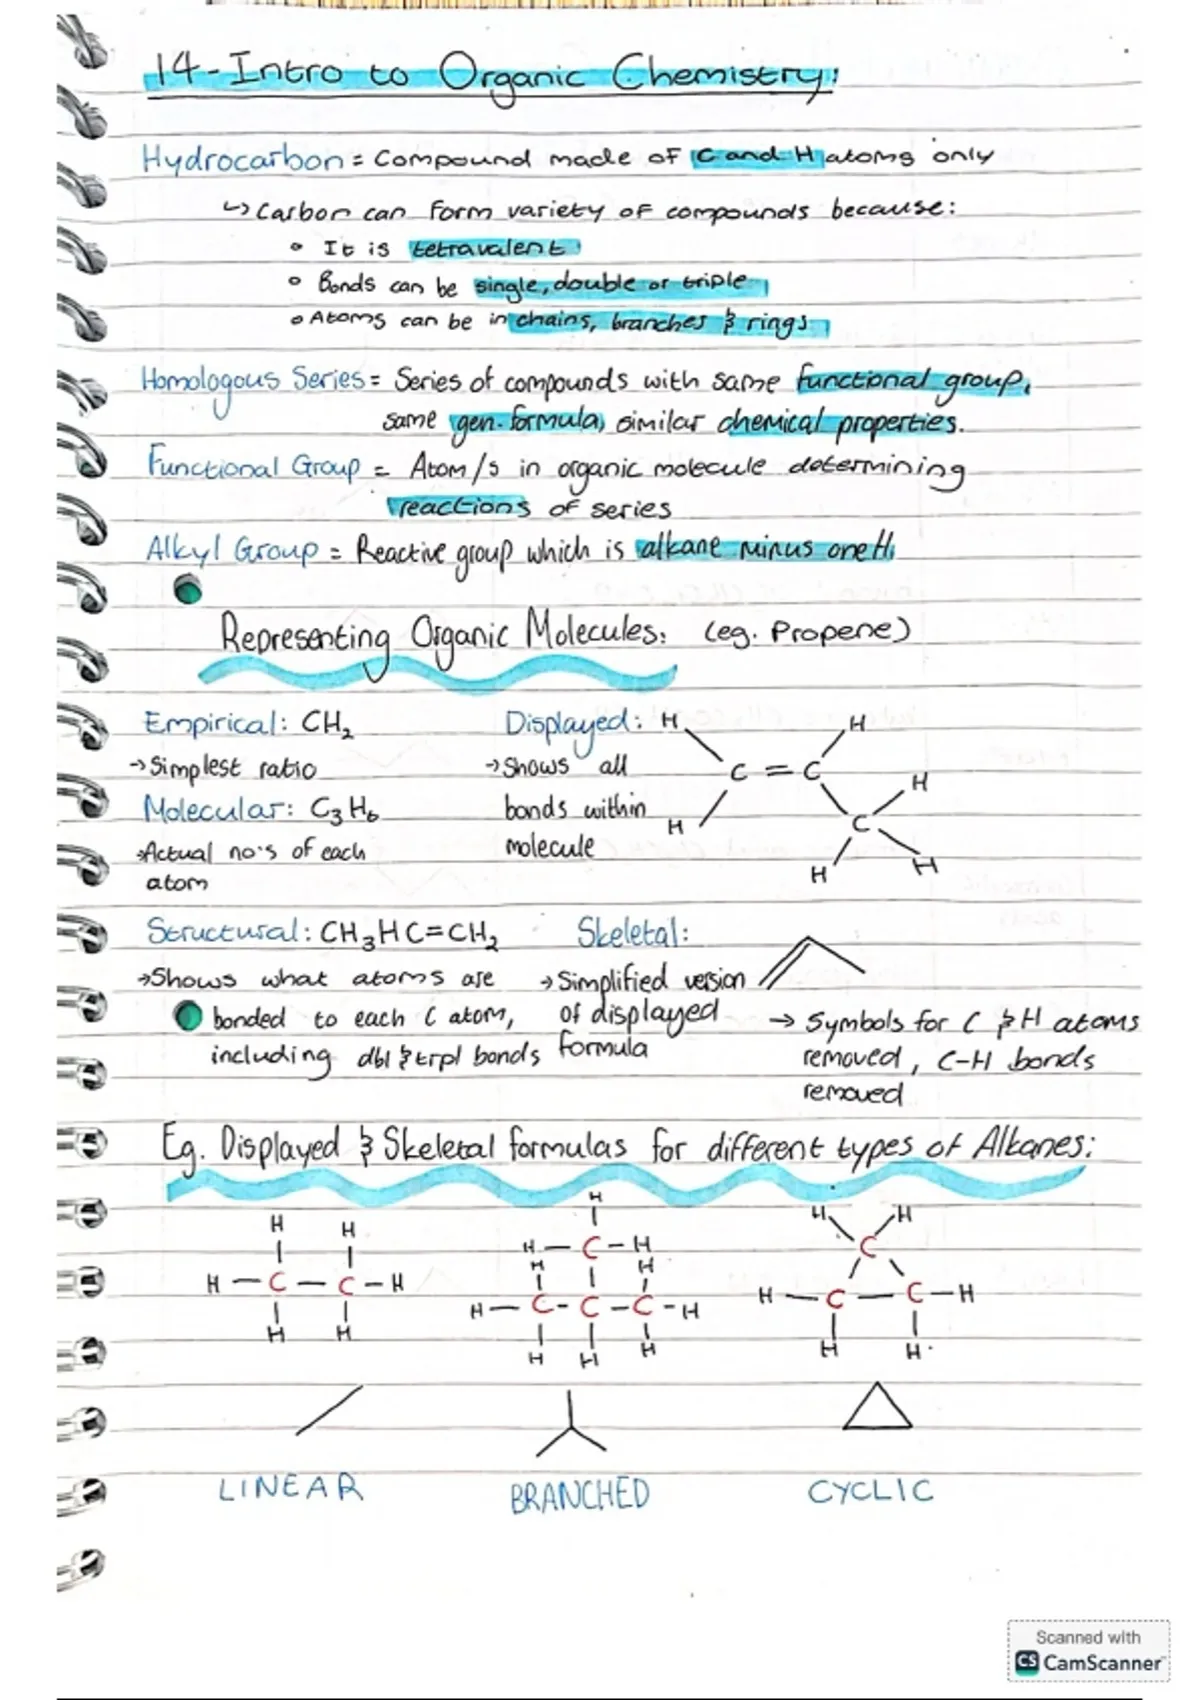 14-Intro to Organic Chemistry:
Hydrocarbon = Compound made of C and H atoms only
↳ Carbon can form variety of compounds because:
• It is tetravalent
• Bonds can be single, double or triple
• Atoms can be in chains, branches & rings
Homologous Series = Series of compounds with same functional group,
same gen. formula, similar chemical properties.
Functional Group = Atom/s in organic molecule determining
reactions of series
Alkyl Group = Reactive group which is alkane minus one H
Representing Organic Molecules: (eg. Propene)
Empirical: CH₂
→ Simplest ratio
Molecular: C₃H₆
→ Actual no's of each
atom
Displayed:
→ Shows all
bonds within
molecule
H H
C = C H
H C
H H
Structural: CH₃HC=CH₂
→ Shows what atoms are
bonded to each C atom,
including dbl & trpl bonds
Skeletal:
→ Simplified version
of displayed
formula
→ Symbols for C & H atoms
removed, C-H bonds
removed
Eg. Displayed & Skeletal formulas for different types of Alkanes:
H H
H — C — C — H
H H
H
H — C — H
H H
H — C — C — C — H
H H H
H H
C
H — C — C — H
H H
LINEAR
BRANCHED
CYCLIC
Scanned with
CS CamScanner